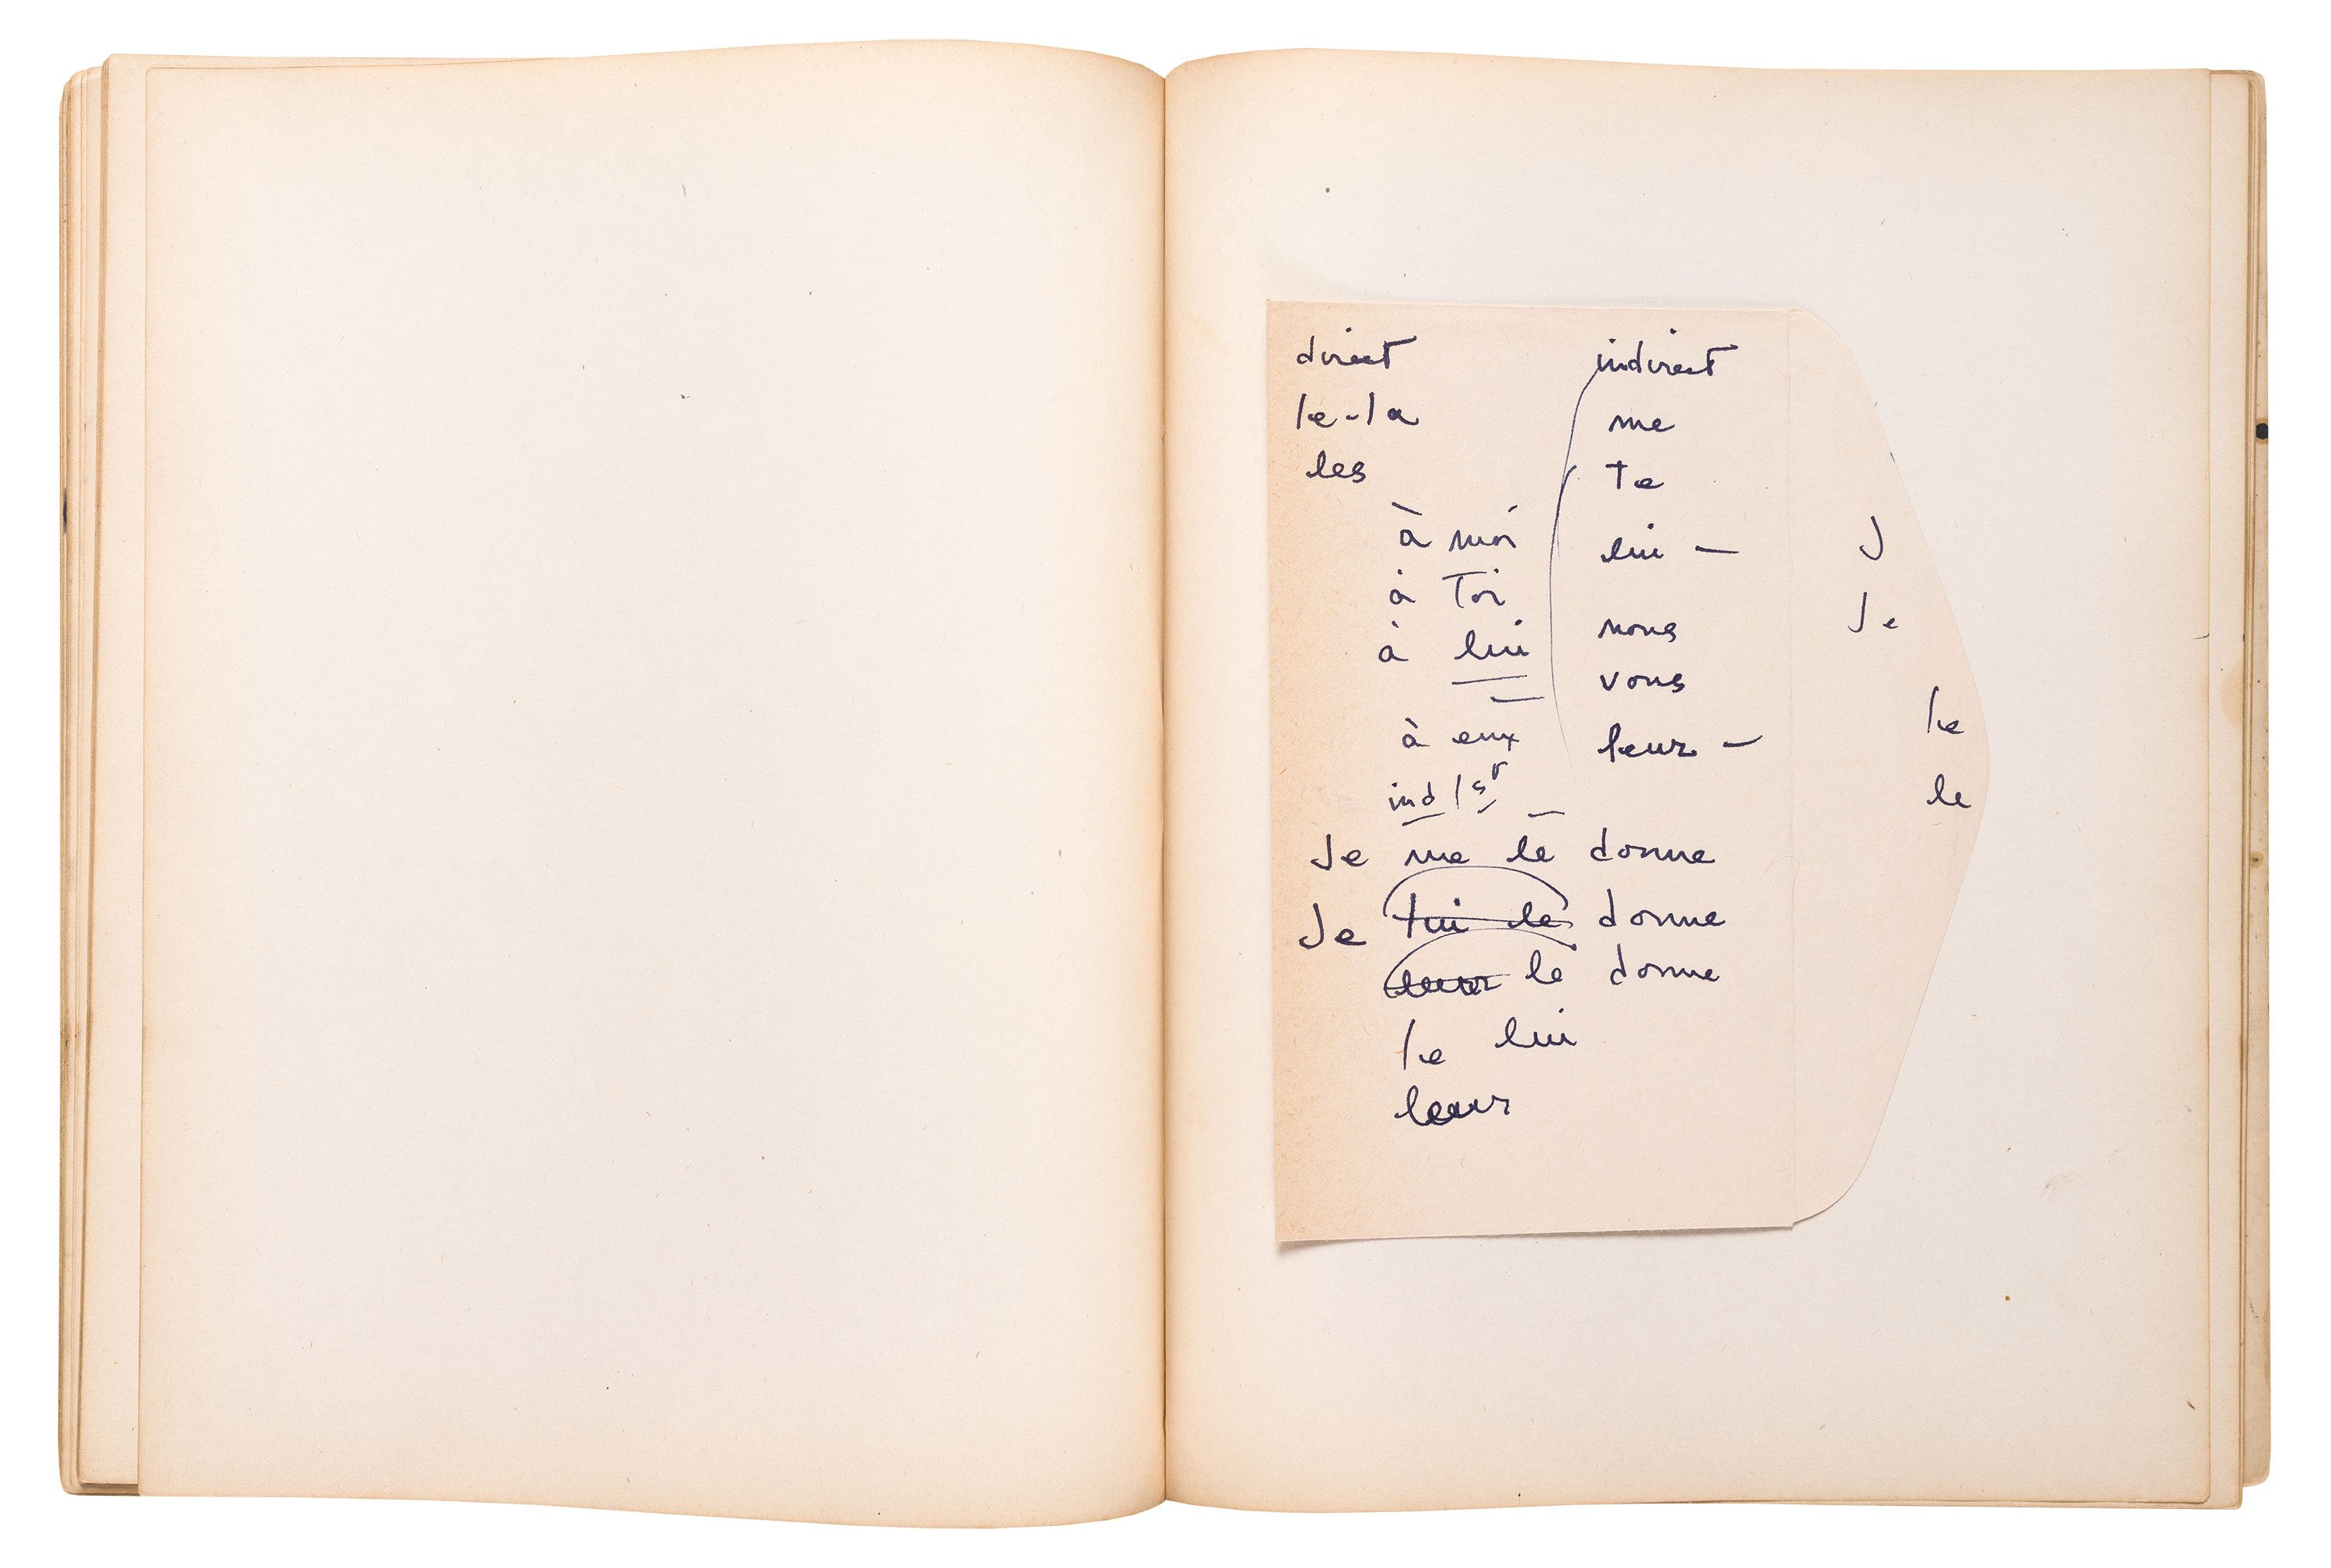 direct
le-la
les
à moi
à Toi
à lui
à eux
ind 1er
indirect
me
te
lui —
nous
vous
leur —
Je me le donne
Je lui le donne
leur le donne
le lui
leur
J
Je
le
le